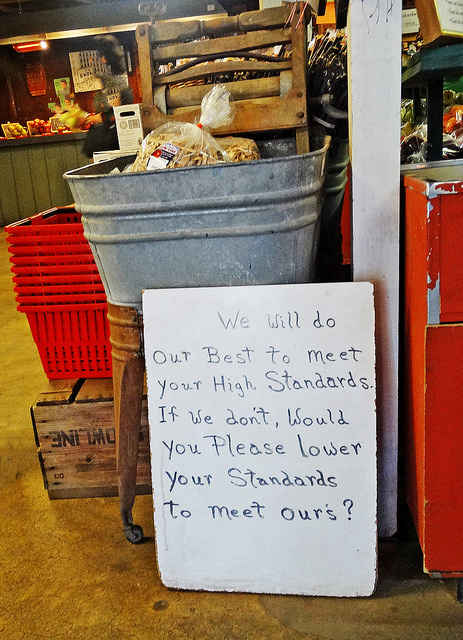 We Will do
Our Best to meet
your High Standards.
If We don't, Would
you Please Lower
your Standards
to meet our's?